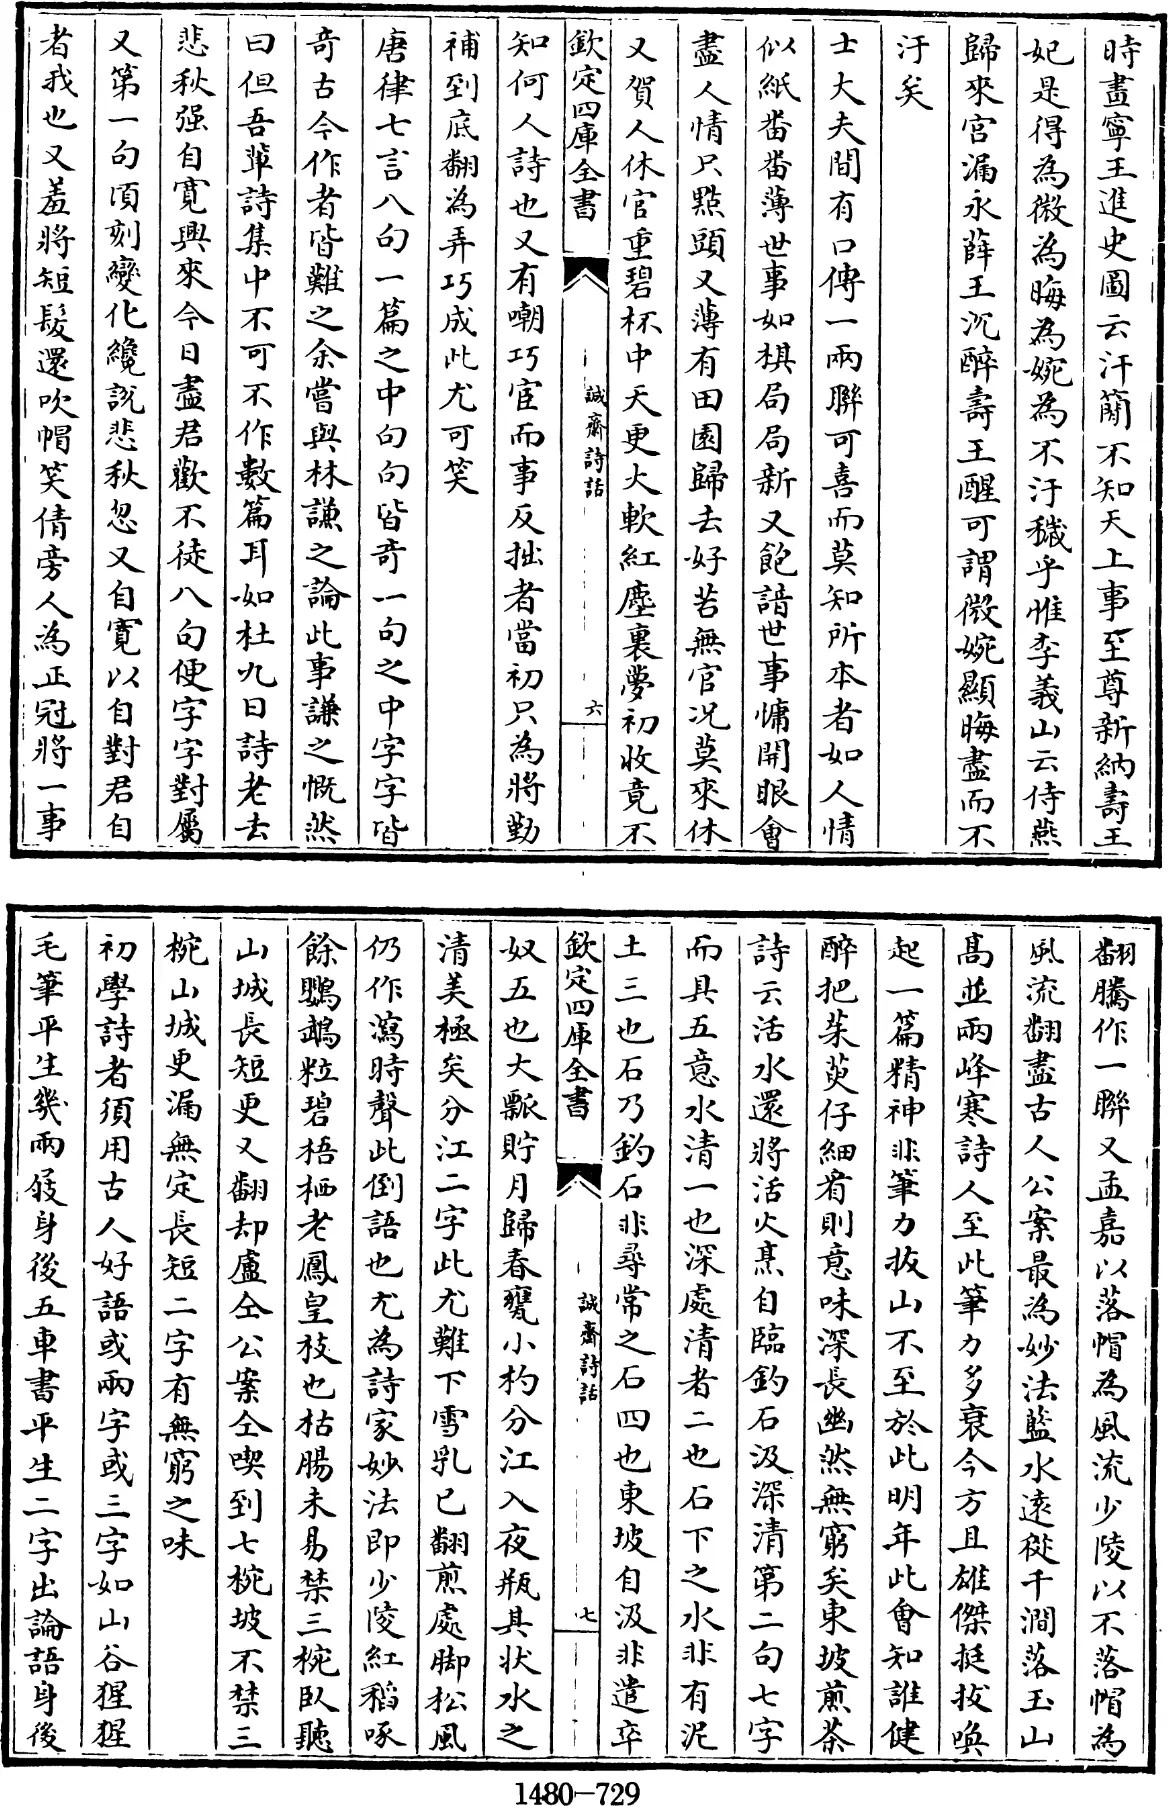 時畫寧王進史圖云汗簡不知天上事至尊新納壽王
妃是得為微為晦為婉為不汙穢乎惟李義山云侍燕
歸來宫漏永薛王沉醉壽王醒可謂微婉顯晦盡而不
汙矣
士大夫間有口傳一兩聯可喜而莫知所本者如人情
似紙畨畨薄世事如棋局局新又飽諳世事慵開眼會
盡人情只點頭又薄有田園歸去好苦無官况莫來休
又賀人休官重碧杯中天更大軟紅塵裏夢初收竟不
欽定四庫全書
誠齋詩話
六
知何人詩也又有嘲巧宦而事反拙者當初只為將勤
補到底翻為弄巧成此尤可笑
唐律七言八句一篇之中句句皆奇一句之中字字皆
奇古今作者皆難之余嘗與林謙之論此事謙之慨然
曰但吾軰詩集中不可不作數篇耳如杜九日詩老去
悲秋强自寛興來今日盡君歡不徒八句便字字對屬
又第一句頃刻變化纔説悲秋忽又自寛以自對君自
者我也又羞將短髮還吹帽笑倩旁人為正冠將一事
翻騰作一聯又孟嘉以落帽為風流少陵以不落帽為
風流翻盡古人公案最為妙法藍水逺從千澗落玉山
髙並兩峰寒詩人至此筆力多衰今方且雄傑挺拔喚
起一篇精神非筆力拔山不至於此明年此會知誰健
醉把茱萸仔細看則意味深長幽然無窮矣東坡煎茶
詩云活水還將活火烹自臨釣石汲深清第二句七字
而具五意水清一也深處清者二也石下之水非有泥
土三也石乃釣石非尋常之石四也東坡自汲非遣卒
欽定四庫全書
誠齋詩話
七
奴五也大瓢貯月歸春甕小杓分江入夜瓶其狀水之
清美極矣分江二字此尤難下雪乳已翻煎處脚松風
仍作瀉時聲此倒語也尤為詩家妙法即少陵紅稻啄
餘鸚鵡粒碧梧栖老鳳皇枝也枯腸未易禁三椀臥聽
山城長短更又翻却盧仝公案仝喫到七椀坡不禁三
椀山城更漏無定長短二字有無窮之味
初學詩者須用古人好語或兩字或三字如山谷猩猩
毛筆平生幾兩屐身後五車書平生二字出論語身後
1480-729